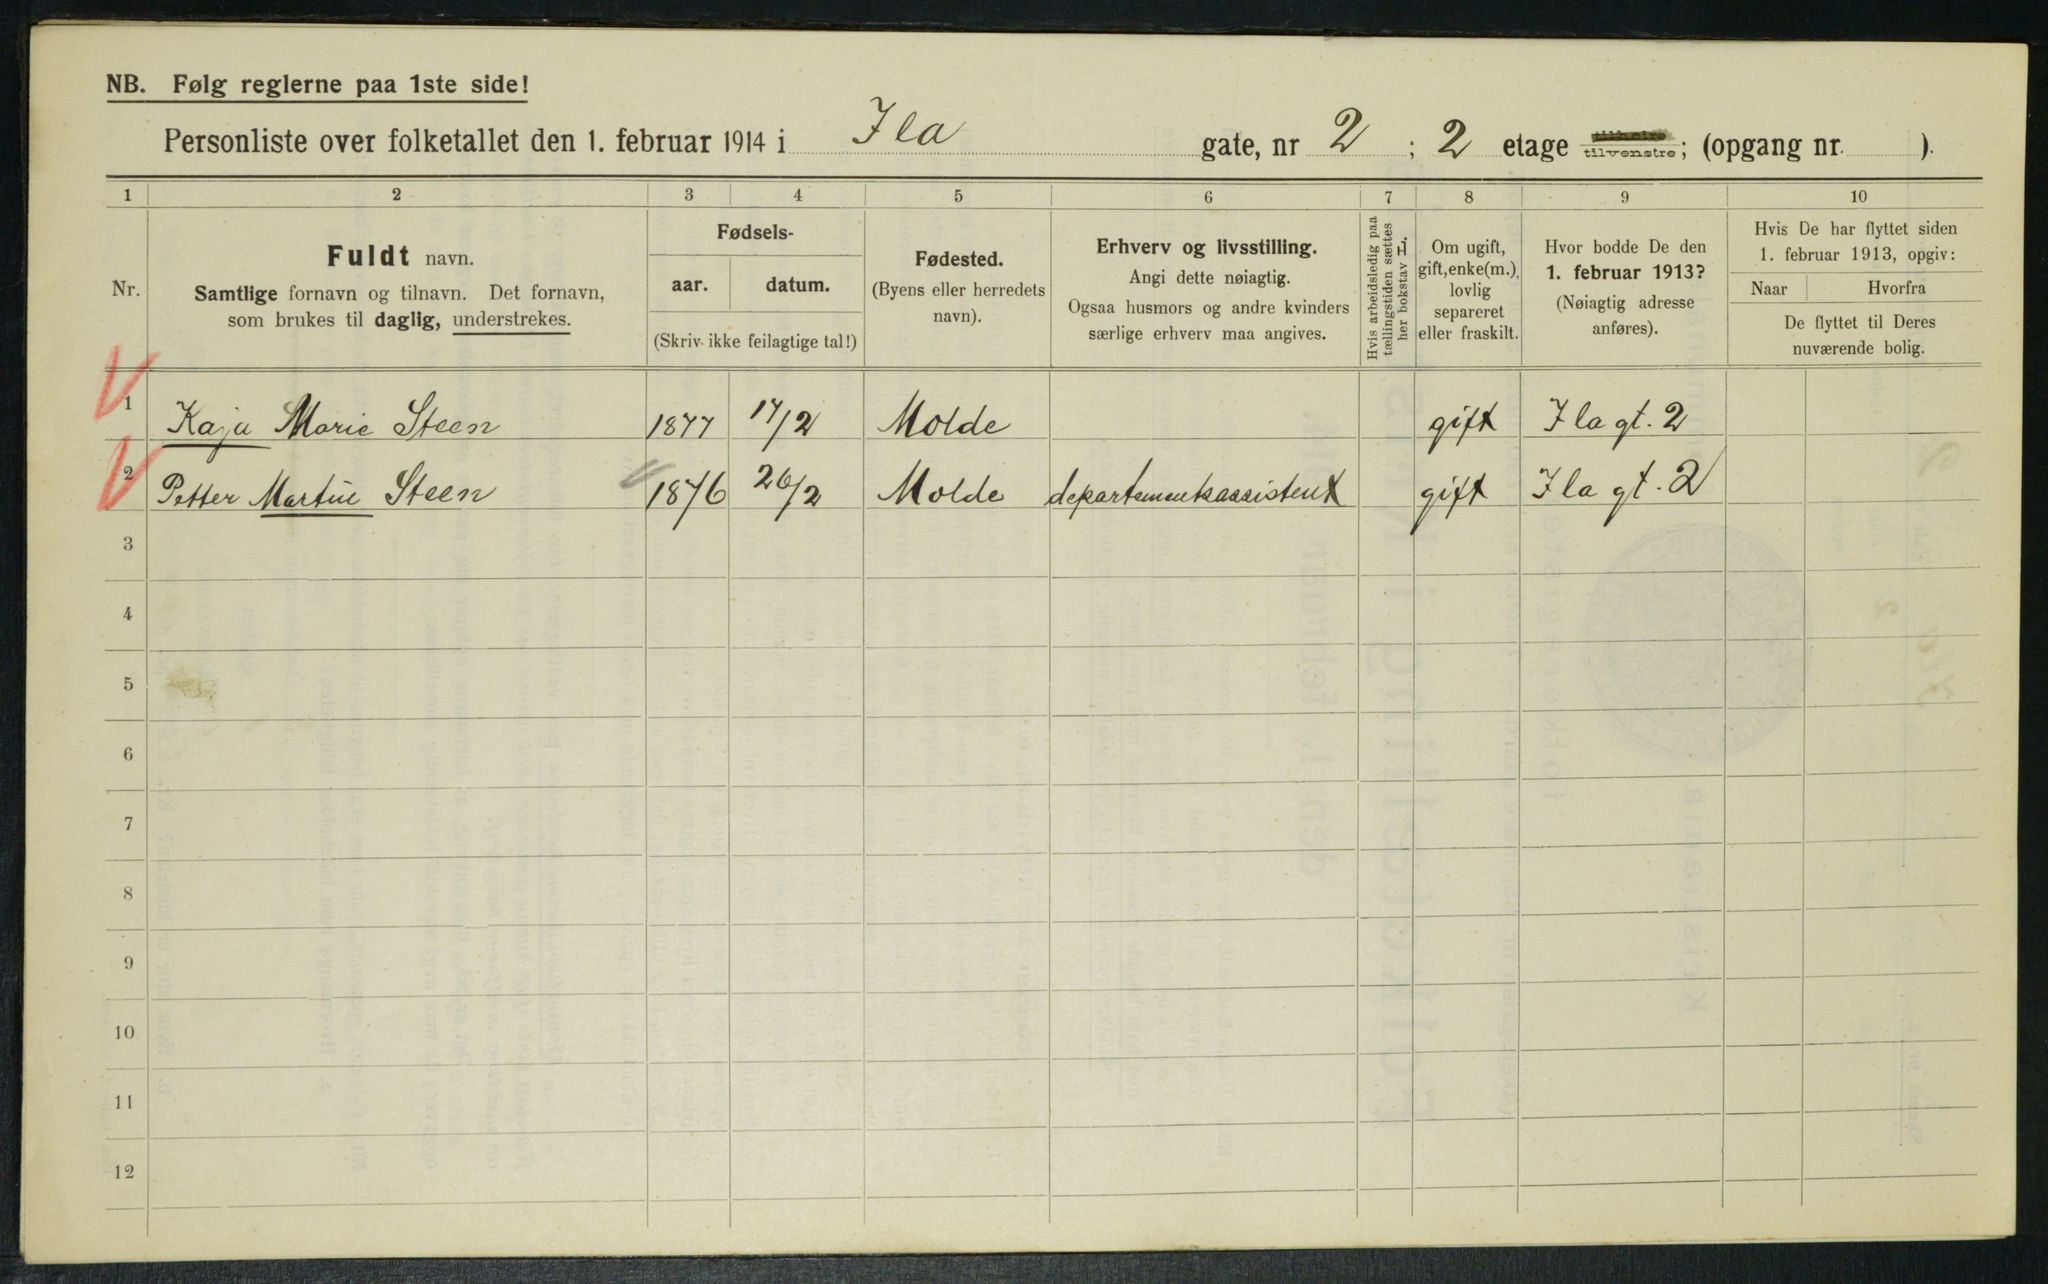 NB. Følg reglerne paa 1ste side!
Personliste over folketallet den 1. februar 1914 i Ila gate, nr 2 ; 2 etage tilvenstre; (opgang nr. ).
1 2 3 4 5 6 7 8 9 10
Nr.
Fuldt navn.
Samtlige fornavn og tilnavn. Det fornavn,
som brukes til daglig, understrekes.
Fødsels-
aar. datum.
(Skriv ikke feilagtige tal!)
Fødested.
(Byens eller herredets
navn).
Erhverv og livsstilling.
Angi dette nøiagtig.
Ogsaa husmors og andre kvinders
særlige erhverv maa angives.
Hvis arbeidsledig paa
tællingstiden sættes
her bokstav L.
Om ugift,
gift, enke(m.),
lovlig
separeret
eller fraskilt.
Hvor bodde De den
1. februar 1913?
(Nøiagtig adresse
anføres).
Hvis De har flyttet siden
1. februar 1913, opgiv:
Naar Hvorfra
De flyttet til Deres
nuværende bolig.
1 Kaja Marie Steen 1877 17/2 Molde gift Ila gt. 2
2 Petter Martin Steen 1876 26/2 Molde departementsassistent gift Ila gt. 2
3
4
5
6
7
8
9
10
11
12